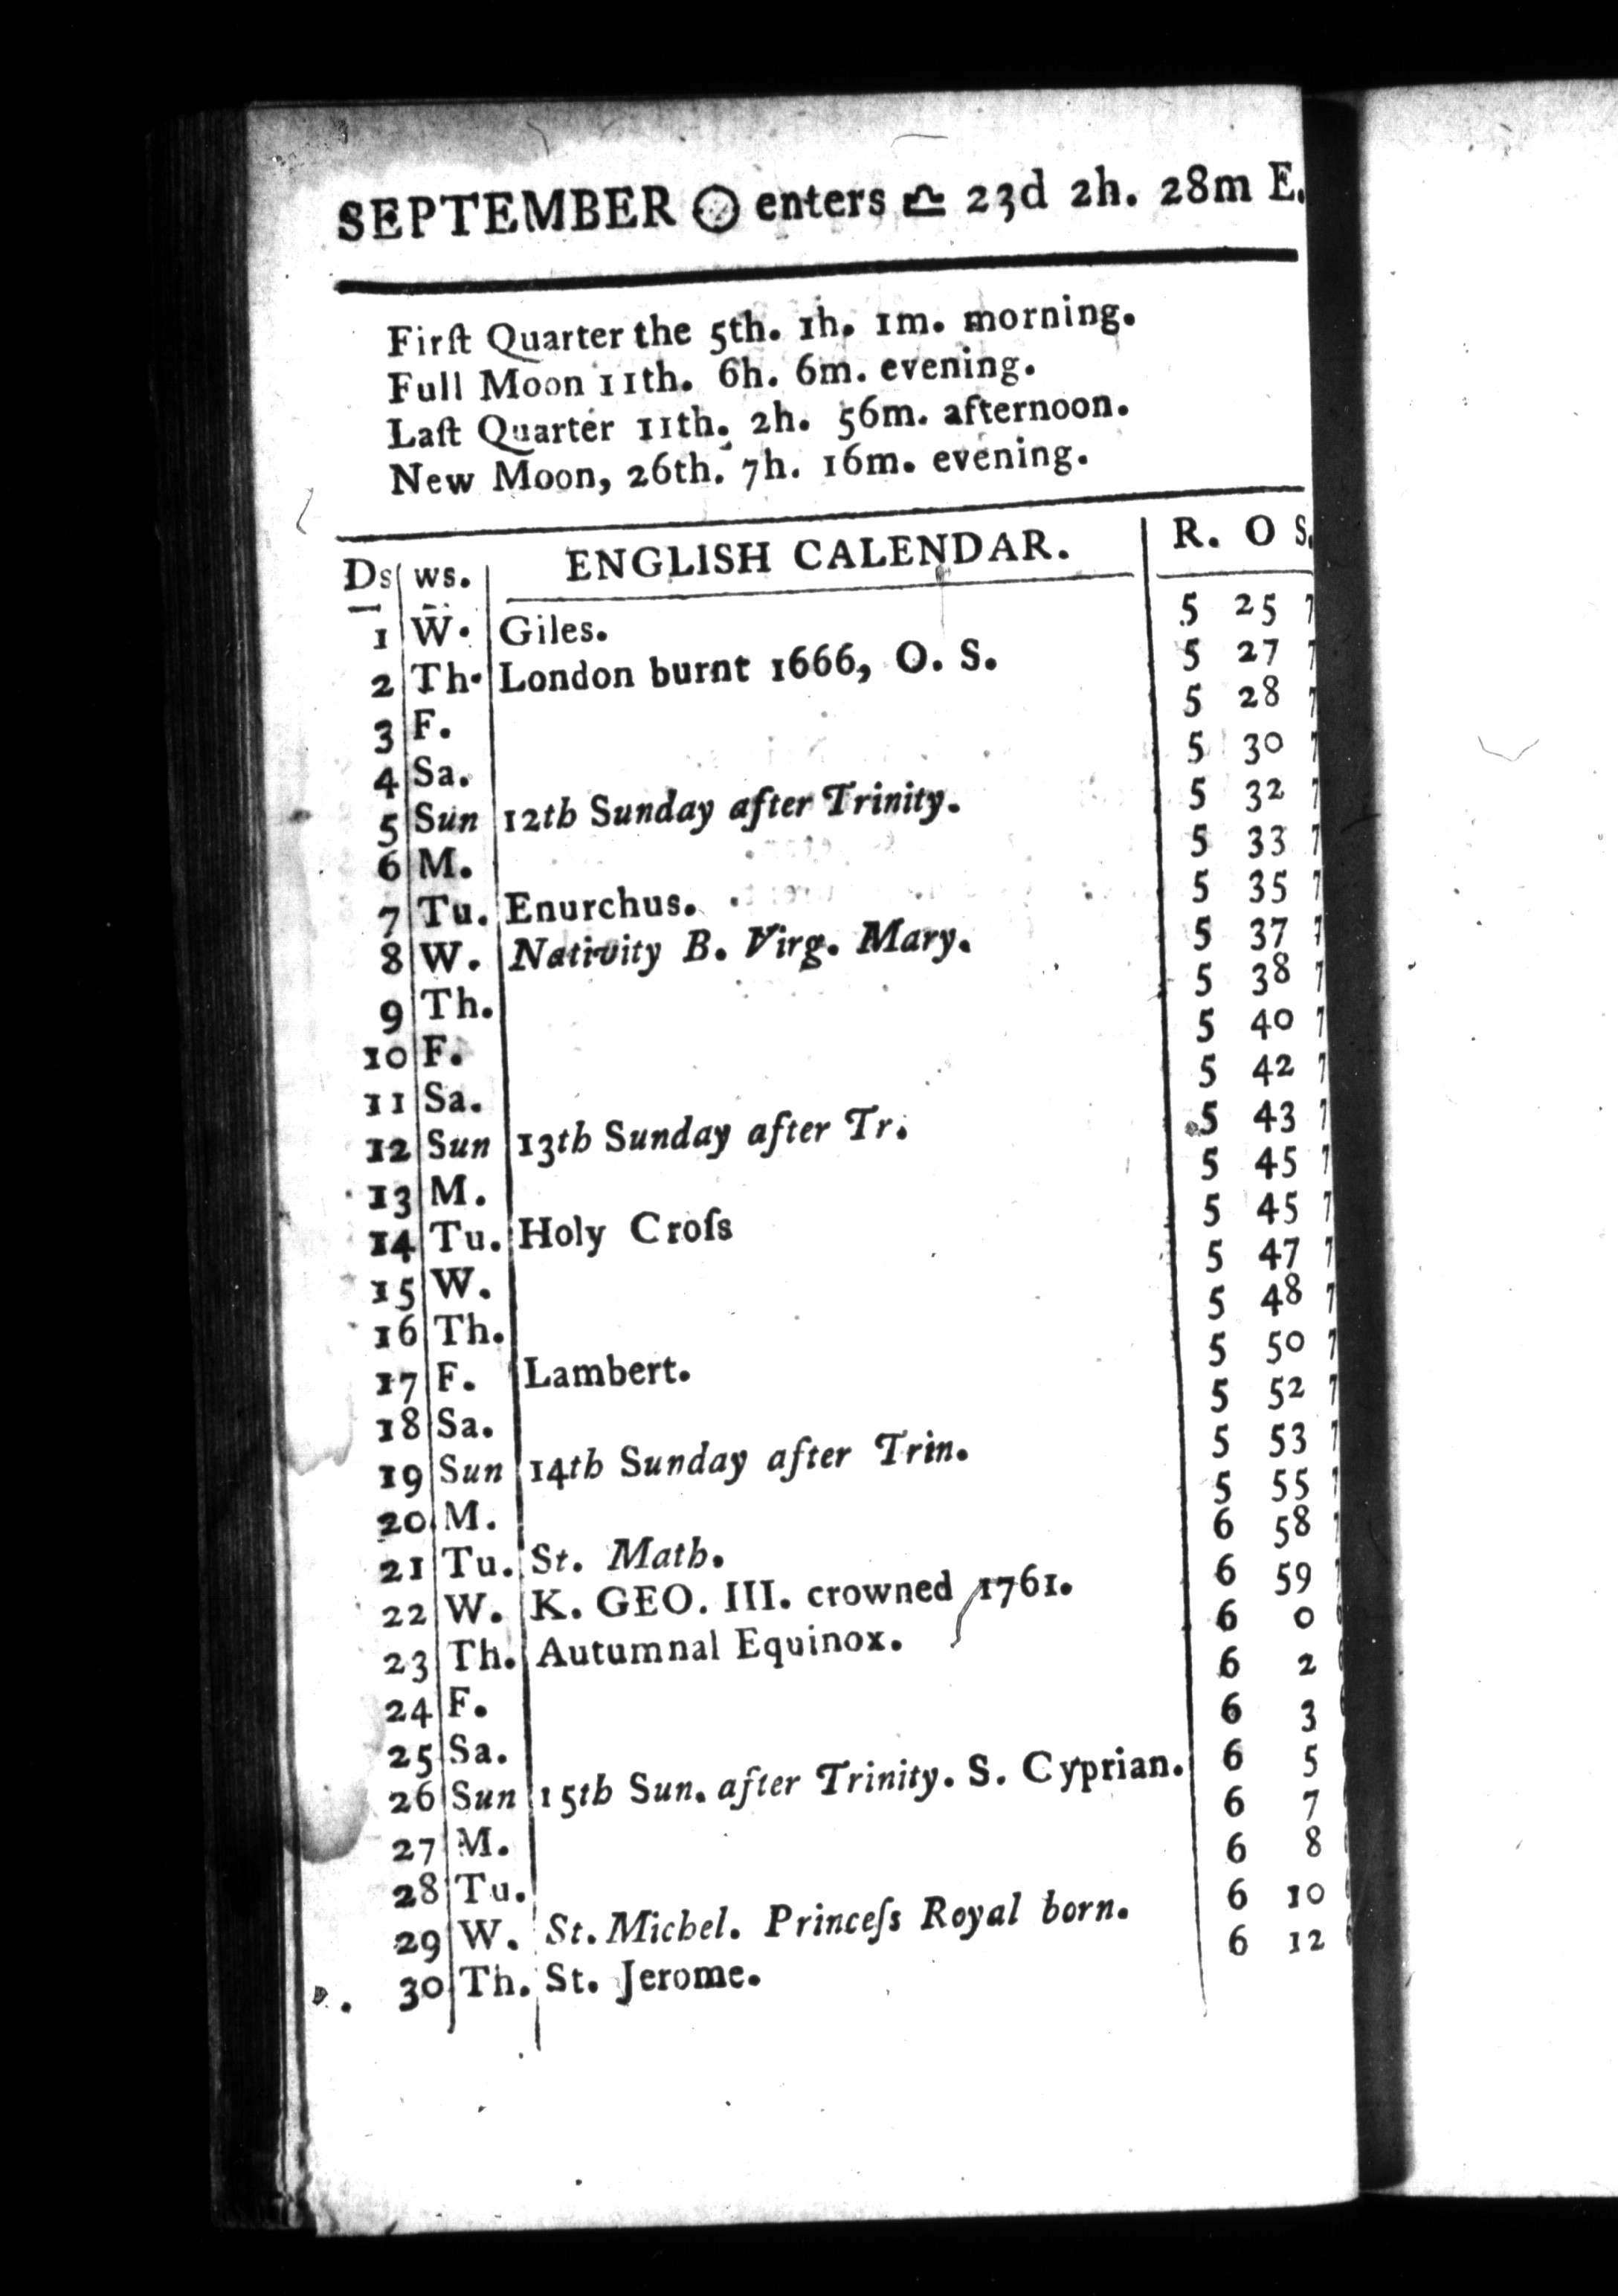 SEPTEMBER ☉ enters ♎ 23d 2h. 28m E.
Firſt Quarter the 5th. 1h. 1m. morning.
Full Moon 11th. 6h. 6m. evening.
Laſt Quarter 11th. 2h. 56m. afternoon.
New Moon, 26th. 7h. 16m. evening.
Ds ws. ENGLISH CALENDAR. R. O S.
1 W. Giles. 5 25 7
2 Th. London burnt 1666, O. S. 5 27 7
3 F. 5 28 7
4 Sa. 5 30 7
5 Sun 12th Sunday after Trinity. 5 32 7
6 M. 5 33 7
7 Tu. Enurchus. 5 35 7
8 W. Nativity B. Virg. Mary. 5 37 7
9 Th. 5 38 7
10 F. 5 40 7
11 Sa. 5 42 7
12 Sun 13th Sunday after Tr. 5 43 7
13 M. 5 45 7
14 Tu. Holy Croſs 5 45 7
15 W. 5 47 7
16 Th. 5 48 7
17 F. Lambert. 5 50 7
18 Sa. 5 52 7
19 Sun 14th Sunday after Trin. 5 53 7
20 M. 5 55
21 Tu. St. Math. 6 58
22 W. K. GEO. III. crowned 1761. 6 59
23 Th. Autumnal Equinox. 6 0
24 F. 6 2
25 Sa. 6 3
26 Sun 15th Sun. after Trinity. S. Cyprian. 6 5
27 M. 6 7
28 Tu. 6 8
29 W. St. Michel. Princeſs Royal born. 6 10
30 Th. St. Jerome. 6 12